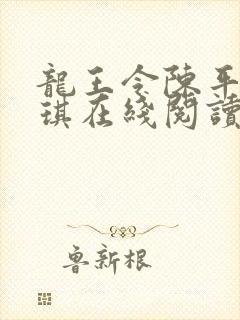 龍王令陳平
琪在綫閱讀
魯新根